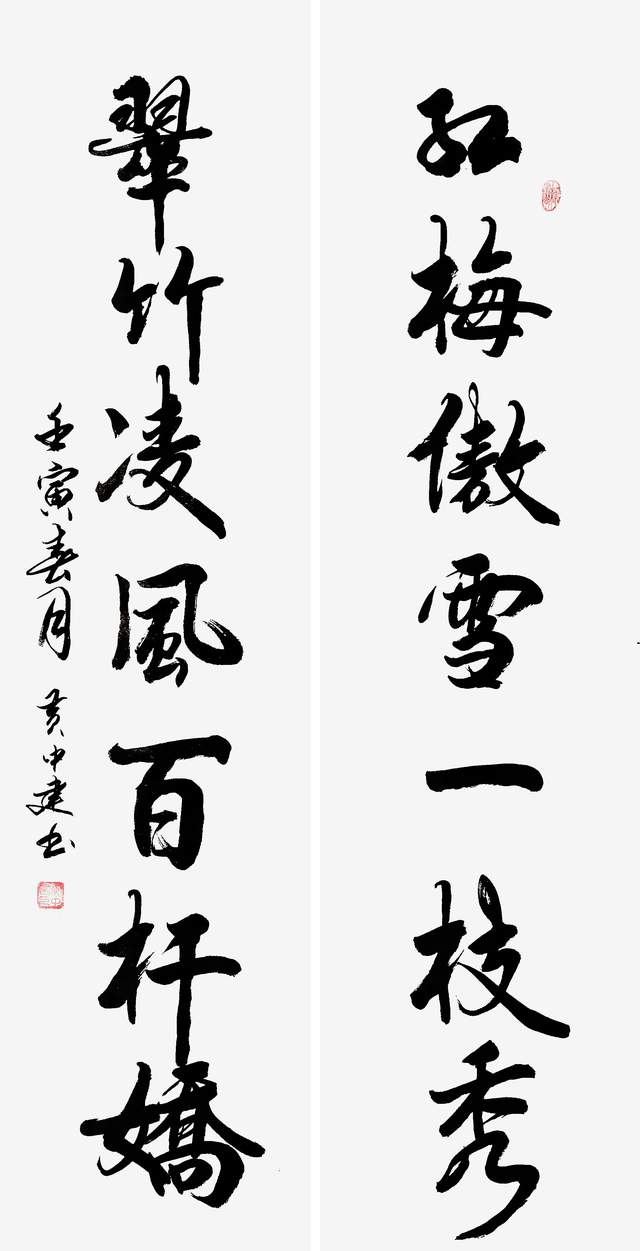 红梅傲雪一枝秀
翠竹凌風百杆嬌
壬寅春月 黄中建书